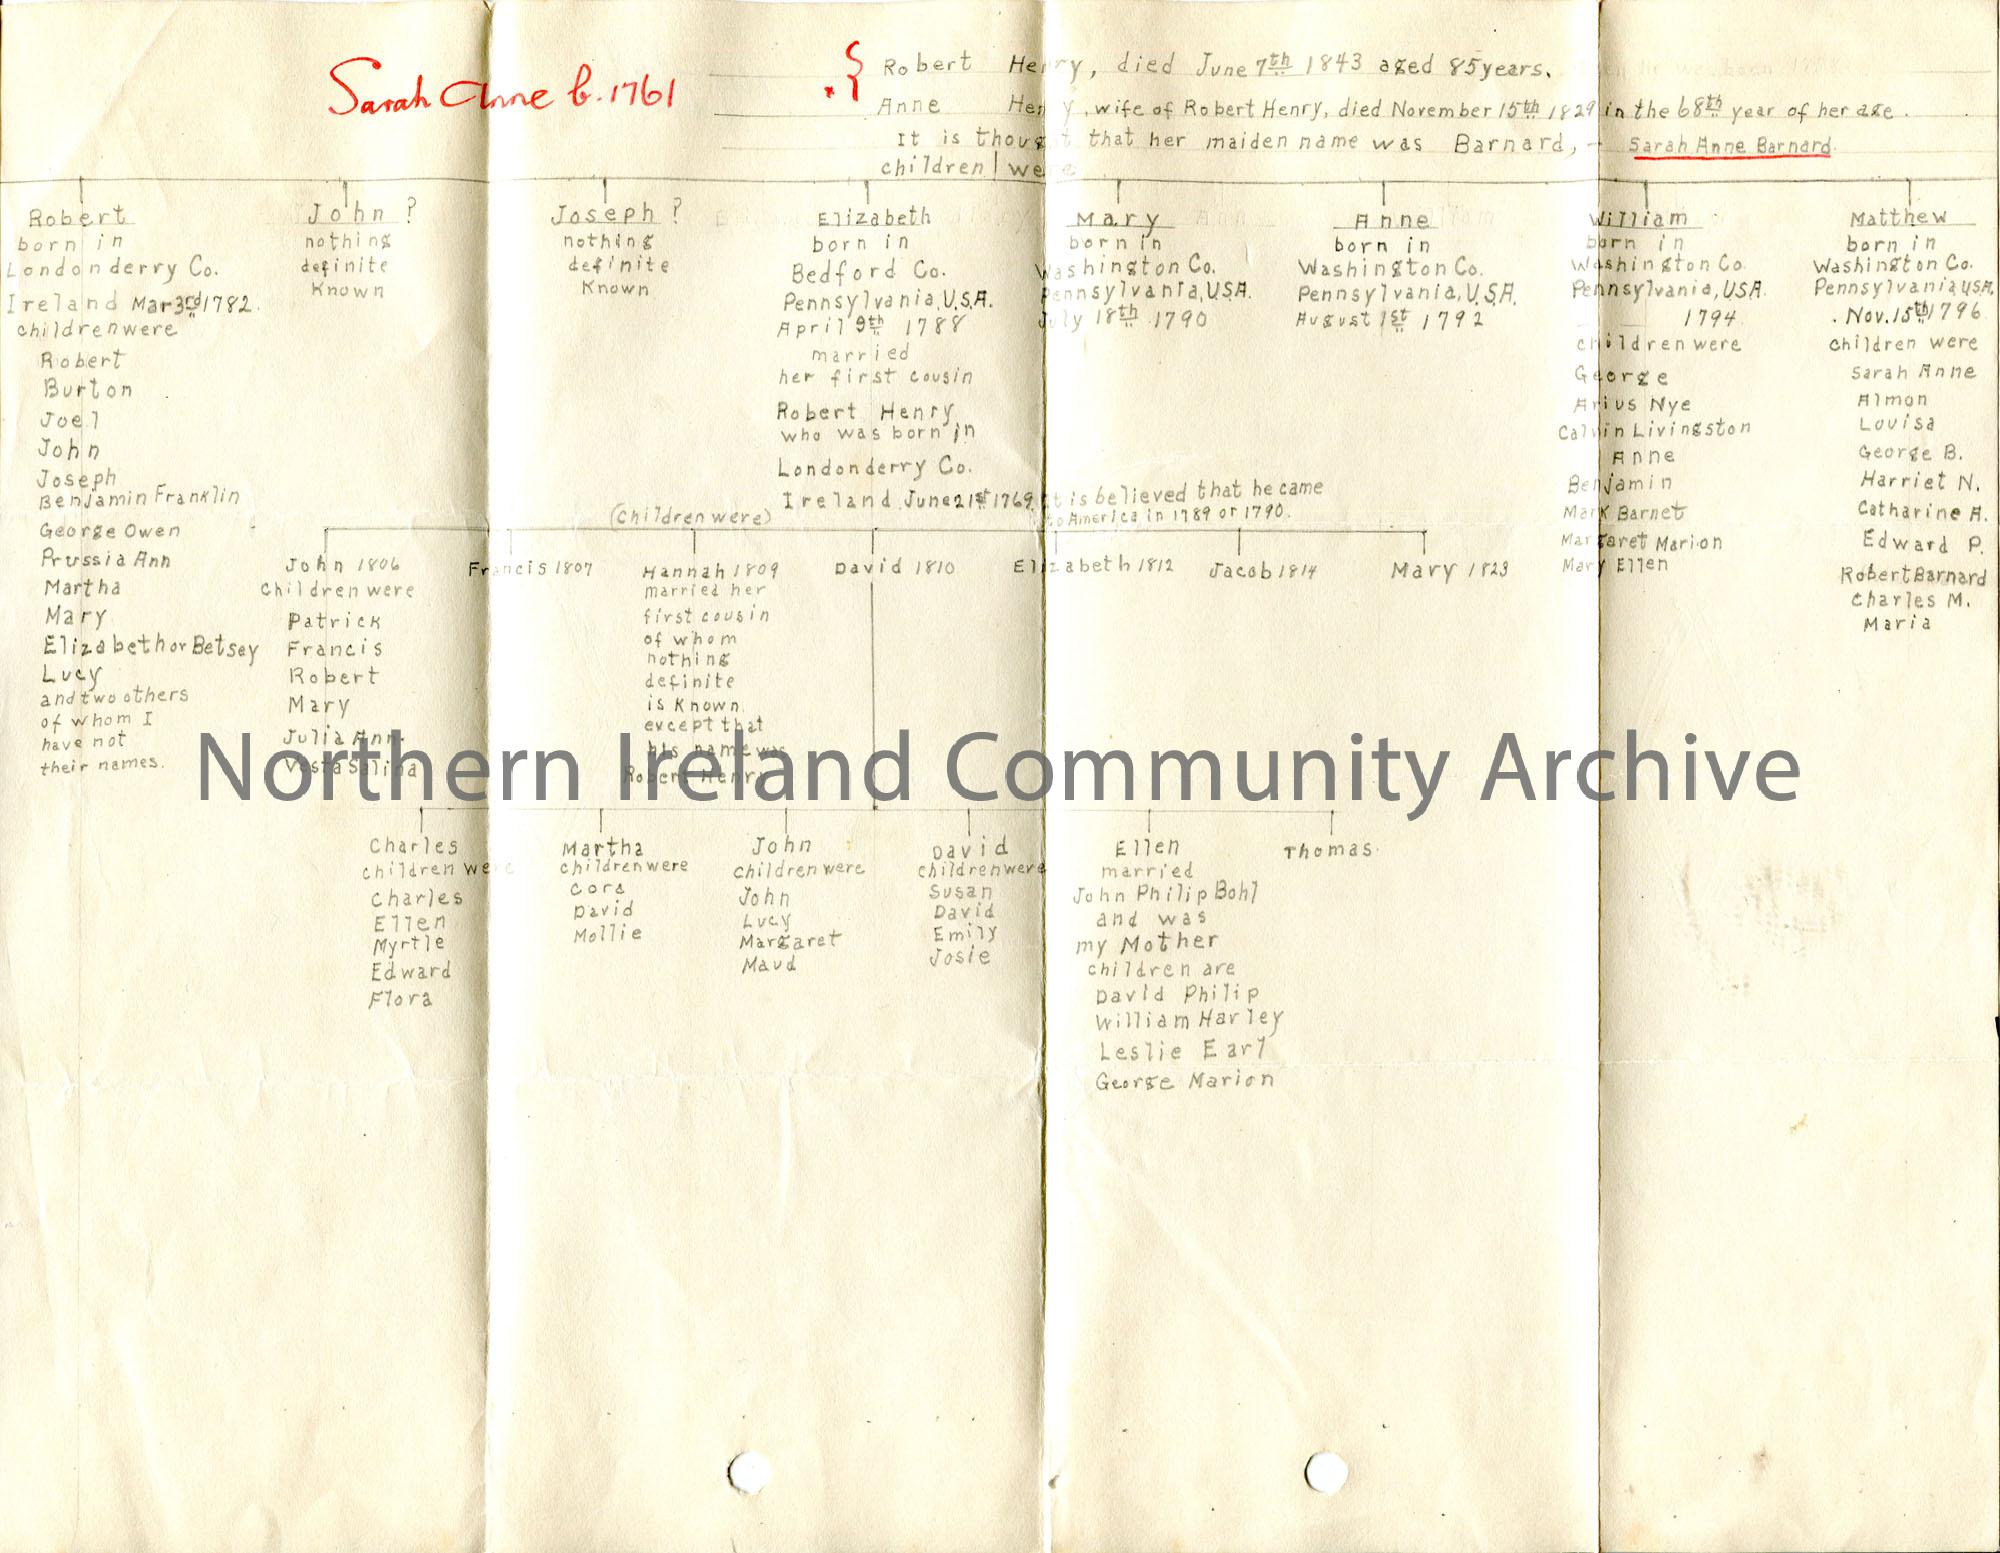 Sarah Anne b. 1761
Robert Henry, died June 7th 1843 aged 85 years.
Anne Henry, wife of Robert Henry, died November 15th 1829 in the 68th year of her age.
It is thought that her maiden name was Barnard, - Sarah Anne Barnard.
children were
Robert
born in
Londonderry Co.
Ireland Mar 3rd 1782.
children were
Robert
Burton
Joel
John
Joseph
Benjamin Franklin
George Owen
Prussia Ann
Martha
Mary
Elizabeth or Betsey
Lucy
and two others
of whom I
have not
their names.
John ?
nothing
definite
Known
Joseph ?
nothing
definite
Known
Elizabeth
born in
Bedford Co.
Pennsylvania, U.S.A.
April 9th 1788
married
her first cousin
Robert Henry
who was born in
Londonderry Co.
Ireland June 21st 1769. It is believed that he came
to America in 1789 or 1790.
Mary
born in
Washington Co.
Pennsylvania, USA.
July 18th 1790
Anne
born in
Washington Co.
Pennsylvania, U.S.A.
August 1st 1792
William
born in
Washington Co.
Pennsylvania, USA.
1794
children were
George
Arius Nye
Calvin Livingston
Anne
Benjamin
Mark Barnet
Margaret Marion
Mary Ellen
Matthew
born in
Washington Co.
Pennsylvania, USA.
Nov. 15th 1796
children were
Sarah Anne
Almon
Louisa
George B.
Harriet N.
Catharine A.
Edward P.
Robert Barnard
Charles M.
Maria
(children were)
John 1806
children were
Patrick
Francis
Robert
Mary
Julia Ann
Vesta Salina
Francis 1807
Hannah 1809
married her
first cousin
of whom
nothing
definite
is Known
except that
his name was
Robert Henry
David 1810
Elizabeth 1812
Jacob 1814
Mary 1823
Northern Ireland Community Archive
Charles
children were
Charles
Ellen
Myrtle
Edward
Flora
Martha
children were
Cora
David
Mollie
John
children were
John
Lucy
Margaret
Maud
David
children were
Susan
David
Emily
Josie
Ellen
married
John Philip Bohl
and was
my Mother
children are
David Philip
William Harley
Leslie Earl
George Marion
Thomas.